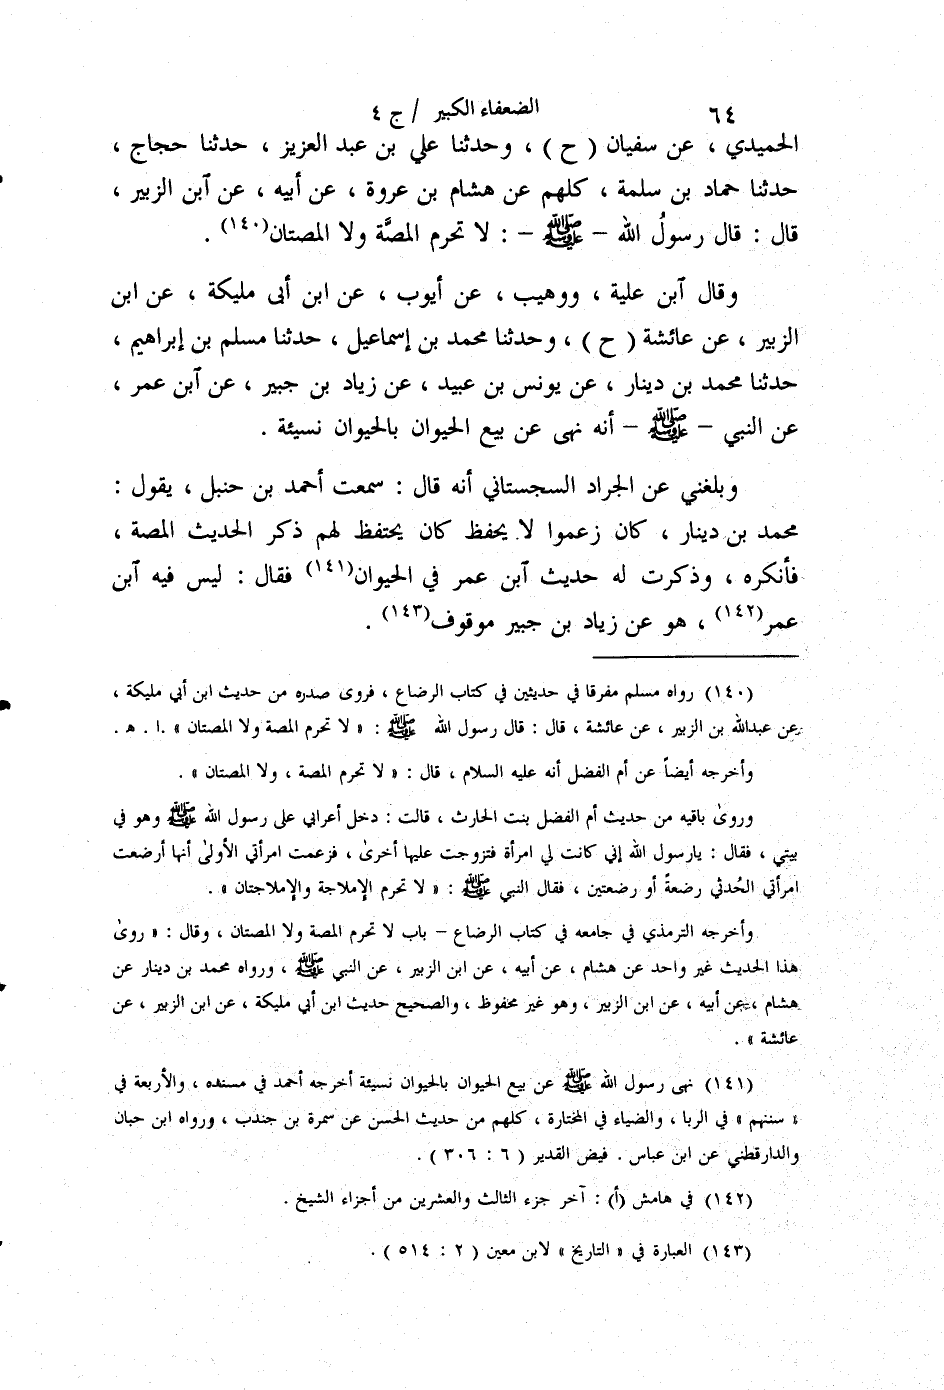 ٦٤ الضعفاء الكبير / ج ٤
الحميدي ، عن سفيان ( ح ) ، وحدثنا علي بن عبد العزيز ، حدثنا حجاج ،
حدثنا حماد بن سلمة ، كلهم عن هشام بن عروة ، عن أبيه ، عن آبن الزبير ،
قال : قال رسولُ الله – ﷺ – : لا تحرم المصَّة ولا المصتان(١٤٠) .
وقال آبن علية ، ووهيب ، عن أيوب ، عن ابن أبى مليكة ، عن ابن
الزبير ، عن عائشة ( ح ) ، وحدثنا محمد بن إسماعيل ، حدثنا مسلم بن إبراهيم ،
حدثنا محمد بن دينار ، عن يونس بن عبيد ، عن زياد بن جبير ، عن آبن عمر ،
عن النبي – ﷺ – أنه نهى عن بيع الحيوان بالحيوان نسيئة .
وبلغني عن الجراد السجستاني أنه قال : سمعت أحمد بن حنبل ، يقول :
محمد بن دينار ، كان زعموا لا يحفظ كان يحتفظ لهم ذكر الحديث المصة ،
فأنكره ، وذكرت له حديث آبن عمر في الحيوان(١٤١) فقال : ليس فيه آبن
عمر(١٤٢) ، هو عن زياد بن جبير موقوف(١٤٣) .
(١٤٠) رواه مسلم مفرقا في حديثين في كتاب الرضاع ، فروى صدره من حديث ابن أبي مليكة ،
عن عبدالله بن الزبير ، عن عائشة ، قال : قال رسول الله ﷺ : « لا تحرم المصة ولا المصتان » .ا . هـ .
وأخرجه أيضاً عن أم الفضل أنه عليه السلام ، قال : « لا تحرم المصة ، ولا المصتان » .
وروىٰ باقيه من حديث أم الفضل بنت الحارث ، قالت : دخل أعرابي على رسول الله ﷺ وهو في
بيتي ، فقال : يارسول الله إني كانت لي امرأة فتزوجت عليها أخرىٰ ، فزعمت امرأتي الأولىٰ أنها أرضعت
امرأتي الحُدثي رضعةً أو رضعتين ، فقال النبي ﷺ : « لا تحرم الإملاجة والإملاجتان » .
وأخرجه الترمذي في جامعه في كتاب الرضاع – باب لا تحرم المصة ولا المصتان ، وقال : « روىٰ
هذا الحديث غير واحد عن هشام ، عن أبيه ، عن ابن الزبير ، عن النبي ﷺ ، ورواه محمد بن دينار عن
هشام ، عن أبيه ، عن ابن الزبير ، وهو غير محفوظ ، والصحيح حديث ابن أبي مليكة ، عن ابن الزبير ، عن
عائشة » .
(١٤١) نهى رسول الله ﷺ عن بيع الحيوان بالحيوان نسيئة أخرجه أحمد في مسنده ، والأربعة في
« سننهم » في الربا ، والضياء في المختارة ، كلهم من حديث الحسن عن سمرة بن جندب ، ورواه ابن حبان
والدارقطني عن ابن عباس . فيض القدير ( ٦ : ٣٠٦ ) .
(١٤٢) في هامش (أ) : آخر جزء الثالث والعشرين من أجزاء الشيخ .
(١٤٣) العبارة في « التاريخ » لابن معين ( ٢ : ٥١٤ ) .